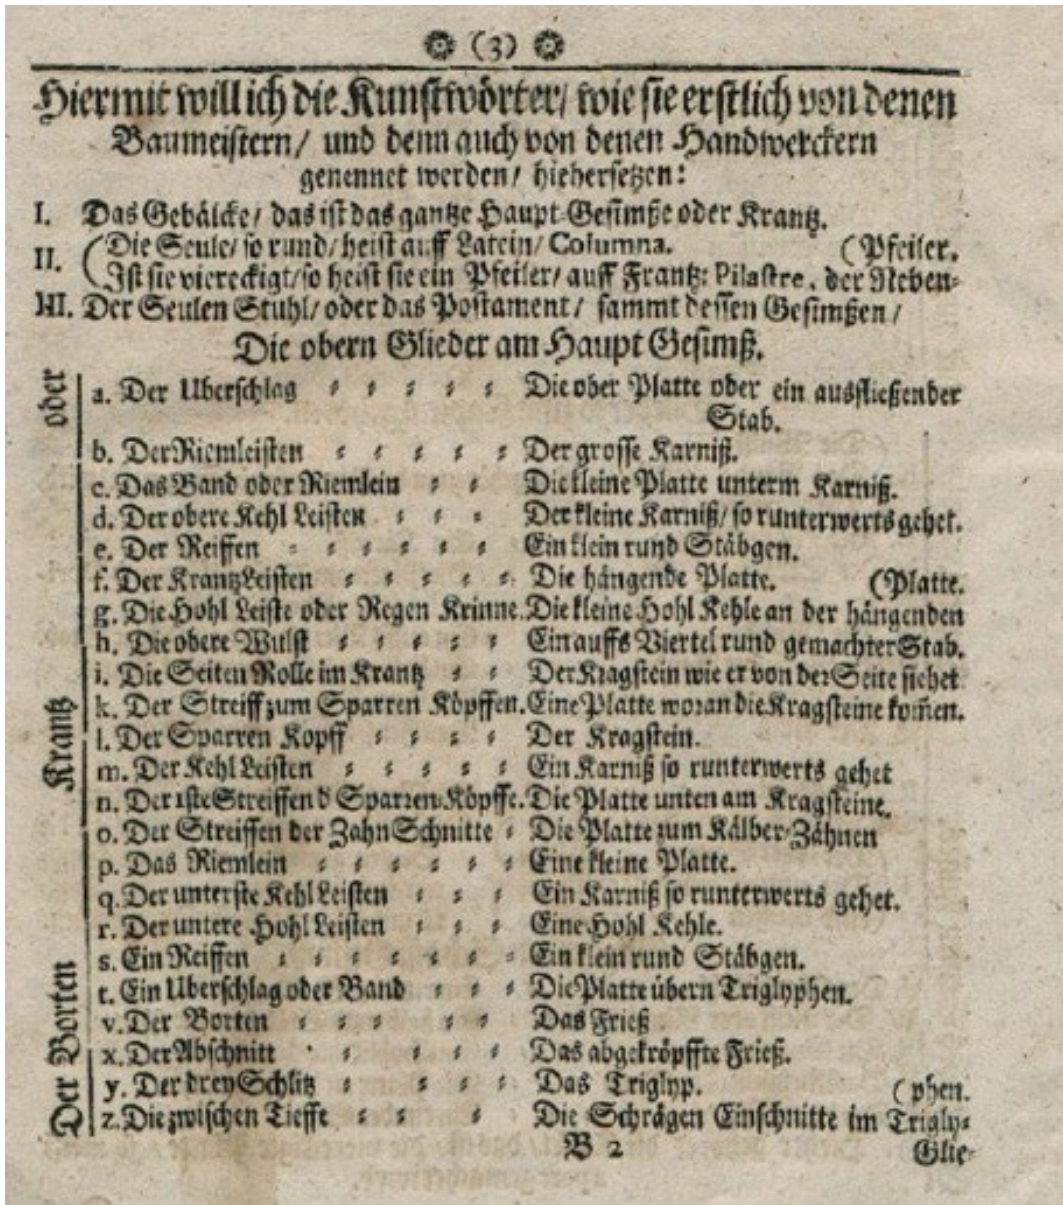 (3)
Hiermit will ich die Kunstwörter/ wie sie erstlich von denen
Baumeistern/ und denn auch von denen Handwerckern
genennet werden/ hiehersetzen:
I. Das Gebälcke/ das ist das gantze Haupt-Gesimße oder Krantz.
II. (Die Seule/ so rund/ heist auff Latein/ Columna. (Pfeiler.
Ist sie viereckigt/ so heist sie ein Pfeiler/ auff Frantz: Pilastre, der Neben-
III. Der Seulen Stuhl/ oder das Postament/ sammt dessen Gesimßen/
Die obern Glieder am Haupt Gesimß.
oder
a. Der Uberschlag = = = = = Die ober Platte oder ein ausfließender
Stab.
b. Der Riemleisten = = = = = Der grosse Karniß.
c. Das Band oder Riemlein = = Die kleine Platte unterm Karniß.
d. Der obere Kehl Leisten = = = Der kleine Karniß/ so runterwerts gehet.
e. Der Reiffen = = = = = = Ein klein rund Stäbgen.
f. Der Krantz Leisten = = = = = Die hängende Platte. (Platte.
g. Die Hohl Leiste oder Regen Krinne. Die kleine Hohl Kehle an der hängenden
h. Die obere Wulst = = = = = Ein auffs Viertel rund gemachter Stab.
Krantz
i. Die Seiten Rolle im Krantz = = Der Kragstein wie er von der Seite siehet
k. Der Streiff zum Sparren Köpffen. Eine Platte woran die Kragsteine kom̃en.
l. Der Sparren Kopff = = = = Der Kragstein.
m. Der Kehl Leisten = = = = = Ein Karniß so runterwerts gehet
n. Der 1ste Streiffen d Sparren-Köpffe. Die Platte unten am Kragsteine.
o. Der Streiffen der Zahn Schnitte = Die Platte zum Kälber-Zähnen
p. Das Riemlein = = = = = = Eine kleine Platte.
q. Der unterste Kehl Leisten = = = Ein Karniß so runterwerts gehet.
r. Der untere Hohl Leisten = = = Eine Hohl Kehle.
Der Borten
s. Ein Reiffen = = = = = = = Ein klein rund Stäbgen.
t. Ein Uberschlag oder Band = = = Die Platte übern Triglyphen.
v. Der Borten = = = = = Das Frieß
x. Der Abschnitt = = = = = Das abgekröpffte Frieß.
y. Der drey Schlitz = = = = Das Triglyp. (phen.
z. Die zwischen Tieffe = = = Die Schrägen Einschnitte im Trigly-
B 2 Glie-